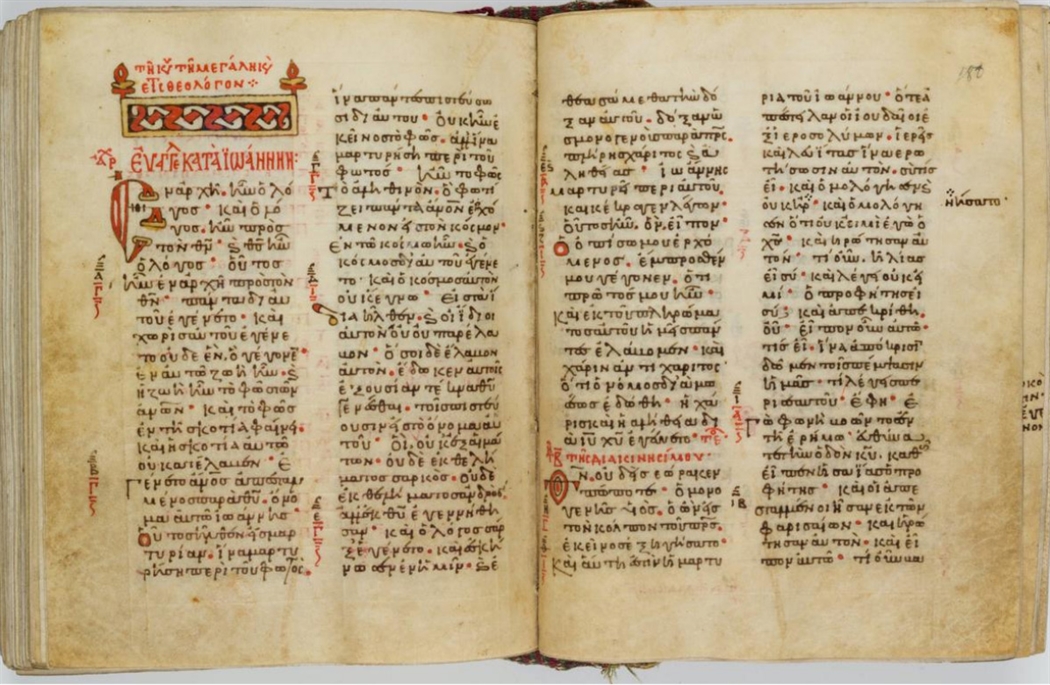 τῇ κυ τῇ μεγάλῃ κυ
ΕΥΑΓΓΕ ΚΑΤᾺ ἸΩΆΝΝΗΝ:
Ἐν ἀρχῇ ἦν ὁ λό
γος· καὶ ὁ λό
γος ἦν πρὸς
τὸν θν̄· ϗ θς̄ ἦν
ὁ λόγος· οὗτος
ἦν ἐν ἀρχῇ πρὸς τὸν
θν̄· πάντα δι αυ
τοῦ ἐγένετο· καὶ
χωρὶς αὐτοῦ ἐγένε
το οὐδὲ ἕν. ὃ γέγονε
ἐν αὐτῶ ζωὴ ἦν· ϗ
ἡ ζωὴ ἦν τὸ φῶς τῶν
ἀνων̄· καὶ τὸ φῶς
ἐν τῇ σκοτία φαίνει·
καὶ ἡ σκοτία αὐτὸ
οὐ κατέλαβεν· ἐ
γένετο ἄνος ἀπεσταλ
μένος παρὰ θῦ· ὄνο
μα αὐτῶ ἰωάννης·
οὗτος ἦλθεν εἰς μαρ
τυρίαν. ἵνα μαρτυ
ρήσῃ περὶ τοῦ φωτός·
ἵνα πάντες πιστεύσω
σι δι αὐτοῦ· οὐκ ἦν ἐ
κεῖνος τὸ φῶς. ἀλλ ἵνα
μαρτυρήσῃ περὶ τοῦ
φωτός· ἦν τὸ φῶς
τὸ ἀληθινὸν. ὃ φωτί
ζει πάντα ἄνον ἐρχό
μενον εἰς τὸν κόσμον·
ἐν τῶ κόσμω ἦν· ϗ ὁ
κόσμος δι αὐτοῦ ἐγένε
το· καὶ ὁ κόσμος αὐτὸν
οὐκ ἔγνω· εἰς τὰ ἴ
δια ἦλθεν· ϗ οἱ ἴδιοι
αὐτὸν οὐ παρέλα
βον· ὅσοι δὲ ἔλαβον
αὐτὸν. ἔδωκεν αὐτοῖς
ἐξουσίαν τέκνα θῦ
γενέσθαι· τοῖς πιστεύ
ουσιν εἰς τὸ ὄνομα αυ
τοῦ· οἳ οὐκ ἐξ αἱμά
των· οὐδὲ ἐκ θελή
ματος σαρκὸς· οὐδὲ
ἐκ θελήματος ἀνδρός·
ἀλλ ἐκ θῦ ἐγεννήθη
σαν· καὶ ὁ λόγος σὰρ
ξ ἐγένετο· καὶ ἐσκή
νωσεν ἐν ἡμῖν· ϗ ἐ
θεασάμεθα τὴν δό
ξαν αὐτοῦ· δόξαν ὡ
ς μονογενοῦς παρὰ πρς.
πλήρης χάριτος ϗ ἀ
ληθείας· ἰωάννης
μαρτυρεῖ περὶ αὐτοῦ.
καὶ κέκραγεν λέγων·
οὗτος ἦν. ὃν εἶπον
ὁ ὀπίσω μου ἐρχό
μενος. ἔμπροσθέν
μου γέγονεν. ὅτι
πρῶτός μου ἦν·
καὶ ἐκ τοῦ πληρώμα
τος αὐτοῦ ἡμεῖς πάν
τες ἐλάβομεν· καὶ
χάριν ἀντὶ χάριτος·
ὅτι ὁ νόμος διὰ μω
σέως ἐδόθη· ἡ χά
ρις καὶ ἡ ἀλήθεια δι
ὰ ἰῦ χῦ ἐγένετο·
τῆς διακινησίμου·
Θν. οὐδεὶς ἑώρακεν
πώποτε· ὁ μονο
γενὴς υἱός. ὁ ὢν εἰς
τὸν κόλπον τοῦ πρς.
ἐκεῖνος ἐξηγήσατο·
καὶ αὕτη ἐστὶν ἡ μαρτυ
ρία τοῦ ἰωάννου· ὅτε ἀ
πέστειλαν οἱ ἰουδαῖοι ἐ
ξ ἱεροσολύμων. ἱερεῖς
καὶ λευίτας ἵνα ἐρω
τήσωσιν αὐτὸν. σὺ τίς
εἶ· καὶ ὡμολόγησεν ϗ
οὐκ ἠρ
νήσατο·
καὶ ὡμολόγη
σεν ὅτι οὐκ εἰμὶ ἐγὼ ὁ
χς̄· καὶ ἠρώτησαν αὐ
τὸν· τί οὖν. ἠλίας
εἶ σύ· καὶ λέγει οὐκ εἰ
μί· ὁ προφήτης εἶ
σύ· καὶ ἀπεκρίθη.
οὔ· εἶπον οὖν αὐτῶ·
τίς εἶ. ἵνα ἀπόκρισιν
δῶμεν τοῖς πέμψασιν
ἡμᾶς· τί λέγεις πε
ρὶ σεαυτοῦ· ἔφη· ἐ
γὼ φωνὴ βοῶντος ἐν
τῇ ἐρήμω. εὐθύνα
τε τὴν ὁδὸν κῦ. καθὼς
εἶπεν ἠσαΐας ὁ προ
φήτης· καὶ οἱ ἀπε
σταλμένοι ἦσαν ἐκ τῶν
φαρισαίων· καὶ ἠρώ
τησαν αὐτὸν· καὶ εἶ
πον αὐτῶ· τί οὖν βα